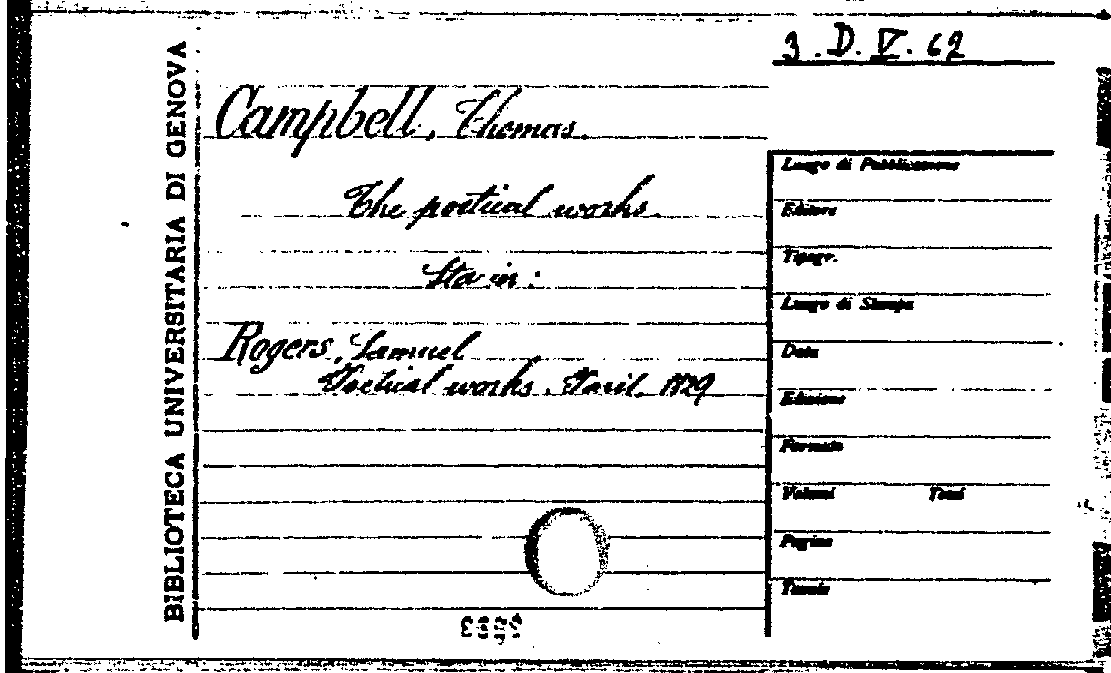 3.D.V.62
BIBLIOTECA UNIVERSITARIA DI GENOVA
Campbell, Thomas.
The poetical works.
Sta in:
Rogers, Samuel
Poetical works. Paris, 1829
Luogo di Pubblicazione
Editore
Tipogr.
Luogo di Stampa
Data
Edizione
Formato
Volumi Tomi
Pagine
Tavole